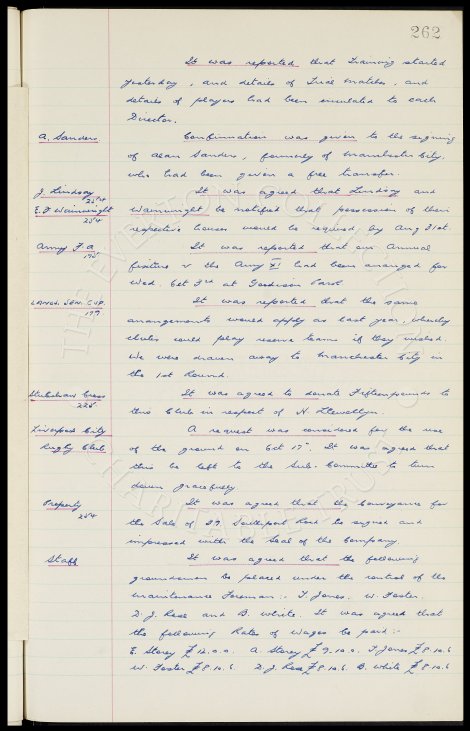 262
It was reported that Training started
yesterday, and details of Trial matches, and
details of players had been circulated to each
Director.
A. Sanders. Confirmation was given to the signing
of Alan Sanders, formerly of Manchester City,
who had been given a free transfer.
J. Lindsay 254 It was agreed that Lindsay and
E. J Wainwright 254 Wainwright be notified that possession of their
respective houses would be required by Aug 31st.
Army F.A 195 It was reported that our Annual
fixture v the Army XI had been arranged for
Wed. Oct 3rd at Goodison Park
LANCS. SEN. CUP. 199 It was reported that the same
arrangements would apply as last year, whereby
clubs could play reserve teams if they wished.
We were drawn away to Manchester City in
the 1st Round.
Stubshaw Cross 225 It was agreed to donate Fifteen pounds to
this Club in respect of H. Llewellyn.
Liverpool City A request was considered for the use
Rugby Club of the ground on Oct 17th. It was agreed that
this be left to the Sub. Committee to turn
down gracefully.
Property 254 It was agreed that the Conveyance for
the Sale of 29 Southport Road be signed and
impressed with the Seal of the Company.
Staff It was agreed that the following
groundsmen be placed under the control of the
Maintenance Foreman:- T. Jones. W. Foster.
D. J. Rose and B. White. It was agreed that
the following Rates of Wages be paid:-
E. Storey £12.0.0. A. Storey £9.10.0. T. Jones £8.10.6
W. Foster £8.10.6. D. J. Rose £8.10.6. B. White £8.10.6